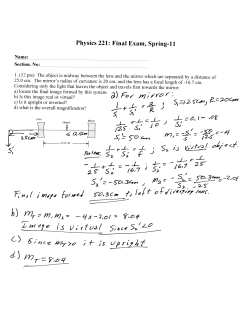 Physics 221: Final Exam, Spring-11
Name:
Section, No:
1. (12 pts) The object is midway between the lens and the mirror which are separated by a distance of
25.0 cm. The mirror's radius of curvature is 20 cm, and the lens has a focal length of -16.7 cm.
Considering only the light that leaves the object and travels first towards the mirror:
a) locate the final image formed by this system
b) Is this image real or virtual?
c) Is it upright or inverted?
d) what is the overall magnification?
a) For mirror:
1/S₁ + 1/S₁' = 2/R ; S₁=12.5cm, R=20cm
1/12.5 + 1/S₁' = 1/10
S₁' = 50cm
25cm
For lens
1/S₂ + 1/S₂' = 1/f ; S₂ is virtual object.
S₂' = -50.3cm,
Final image formed 50.3cm to left of diverging lens.
b) M_T = m₁m₂ = -4x-2.01 = 8.04
Image is virtual since S₂'<0
c) Since m_T>0 it is upright
d) M_T = 8.04